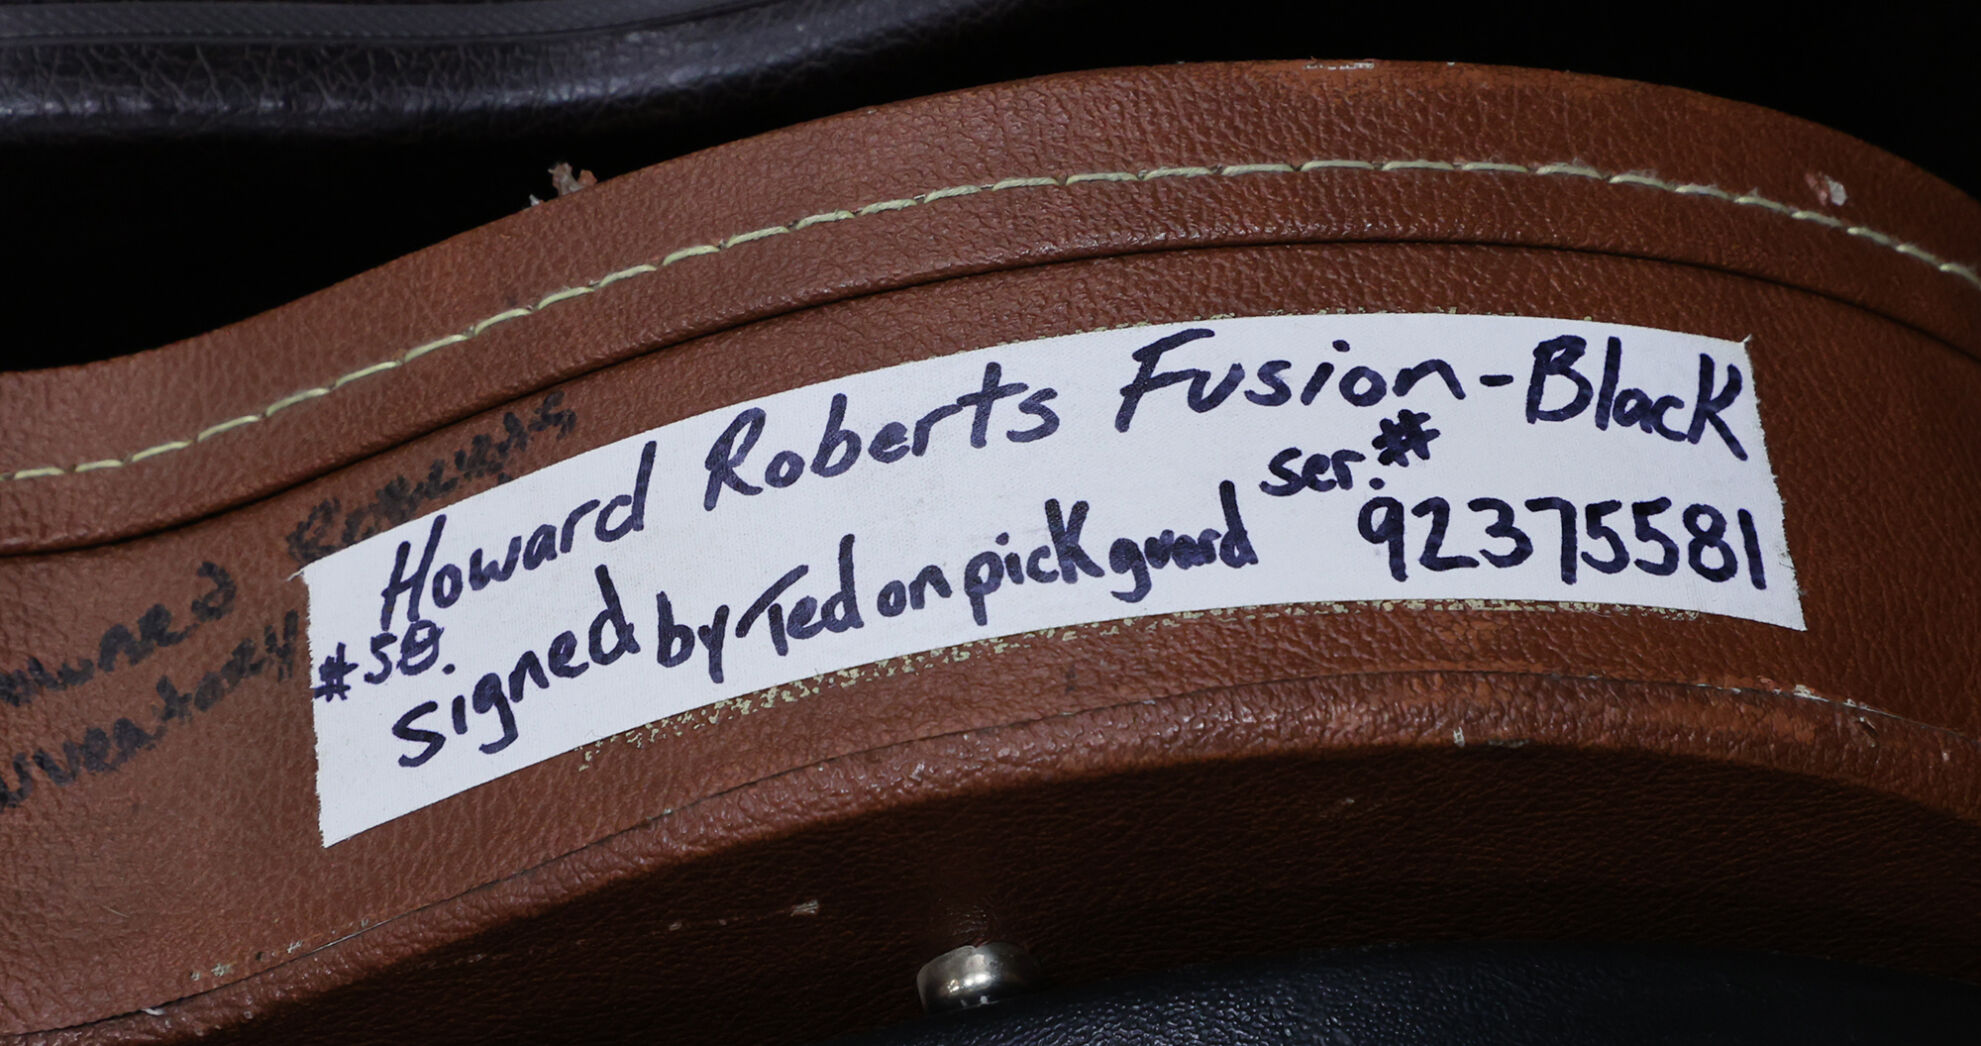 Howard Roberts Fusion-Black
#58. Signed by Ted on pick guard
ser.# 92375581
owned
inventory